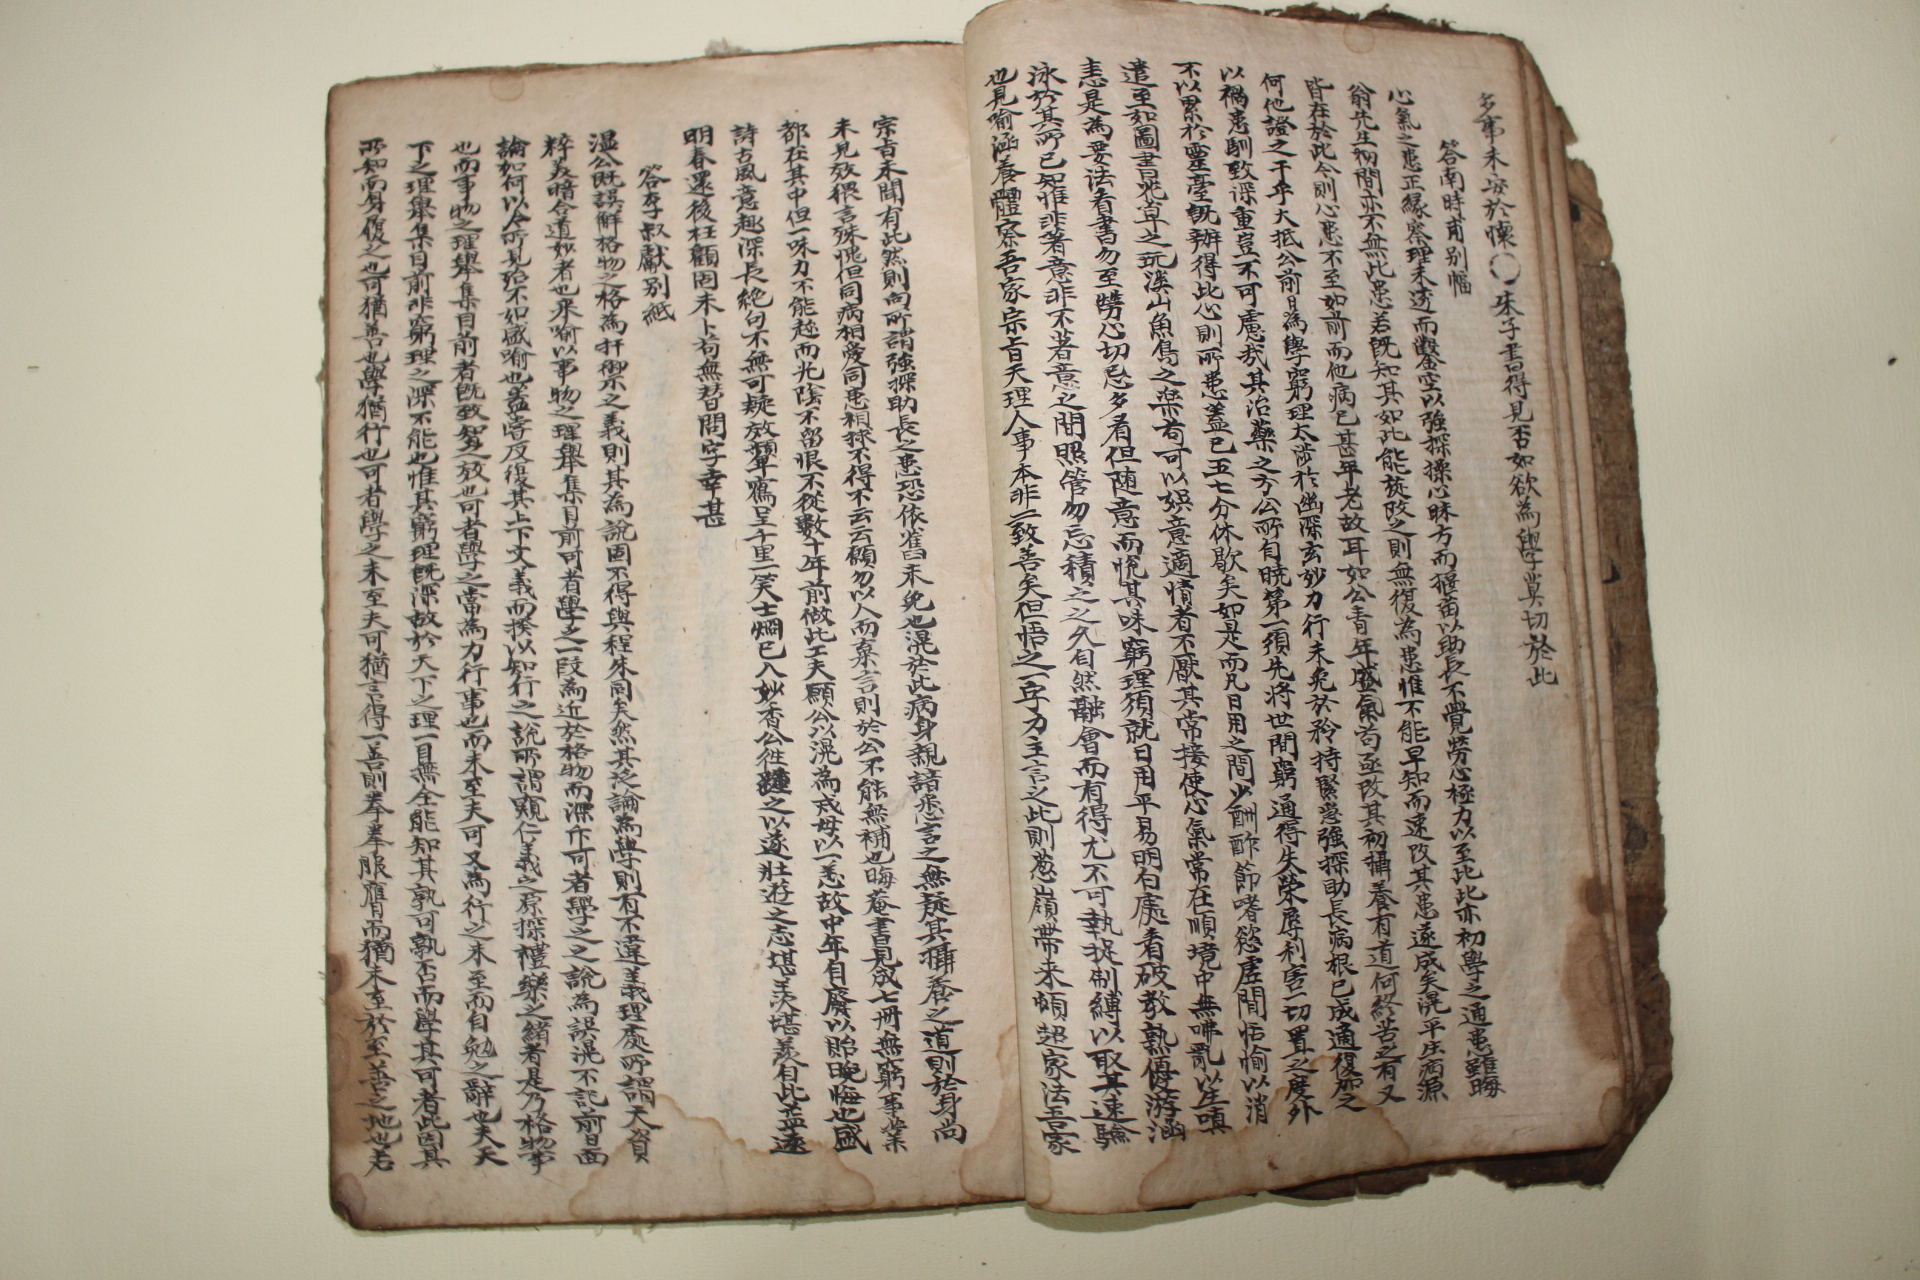 多事未安於懷○朱子書得見否如欲為學莫切於此
答南時甫別幅
心氣之患正緣察理未透而鑿空以強探操心昧方而揠苗以助長不覺勞心極力以至此此亦初學之通患雖晦
翁先生初間亦不無此患若既知其如此能旋改之則無復為患惟不能早知而速改其患遂成矣滉平生病源
皆在於此今則心患不至如前而他病已甚年老故耳如公青年盛氣苟亟改其初攝養有道何終苦之有又
何他證之干乎大抵公前日為學窮理太涉於幽深玄妙力行未免於矜持緊急強探助長病根已成適復加之
以禍患馴致深重豈不可慮哉其治藥之方公所自曉第一須先將世間窮通得失榮辱利害一切置之度外
不以累於靈臺既辦得此心則所患蓋已五七分休歇矣如是而凡日用之間少酬酢節嗜慾虛閒恬愉以消
遣至如圖書花草之玩溪山魚鳥之樂苟可以娛意適情者不厭其常接使心氣常在順境中無咈亂以生嗔
恚是為要法看書勿至勞心切忌多看但隨意而悅其味窮理須就日用平易明白處看破教熟優游涵
泳於其所已知惟非著意非不著意之間照管勿忘積之之久自然融會而有得尤不可執捉制縛以取其速驗
也見喻涵養體察吾家宗旨天理人事本非二致善矣但悟之一字力主言之此則葱嶺帶來頓超家法吾家
宗旨未聞有此然則向所謂強探助長之患恐依舊未免也滉於此病身親諳悉言之無疑其攝養之道則於身尚
未見效猥言殊愧但同病相愛同患相捄不得不云云願勿以人而棄言則於公不能無補也晦菴書見成七冊無窮事業
都在其中但一味力不能趁而光陰不留恨不從數十年前做此工夫願公以滉為戒毋以一恙故中年自廢以貽晚悔也盛
詩古風意趣深長絕句不無可疑放顛草寫呈千里一笑士炯已入妙香公往踵之以遂壯遊之志堪羨堪羨自此益遠
明春還後枉顧固未卜苟無替問字幸甚
答李叔獻別紙
溫公既誤解格物之格為扞禦之義則其為說固不得與程朱同矣然其泛論為學則有不違義理處所謂天資
粹美暗合道妙者也來喻以事物之理舉集目前可者學之一段為近於格物而深斥可者學之之說為誤滉不記前日面
論如何以今所見殆不如盛喻也蓋嘗反復其上下文義而揆以知行之說所謂窺仁義之原探禮樂之緒者是乃格物事
也而事物之理舉集目前者既致知之效也可者學之當為力行事也而未至夫可又為行之未至而自勉之辭也夫天
下之理舉集目前非窮理之深不能也惟其窮理既深故於天下之理一目無全能知其孰可孰否而學其可者此因其
所知而身履之也可猶善也學猶行也可者學之未至夫可猶言得一善則拳拳服膺而猶未至於至善之地也若